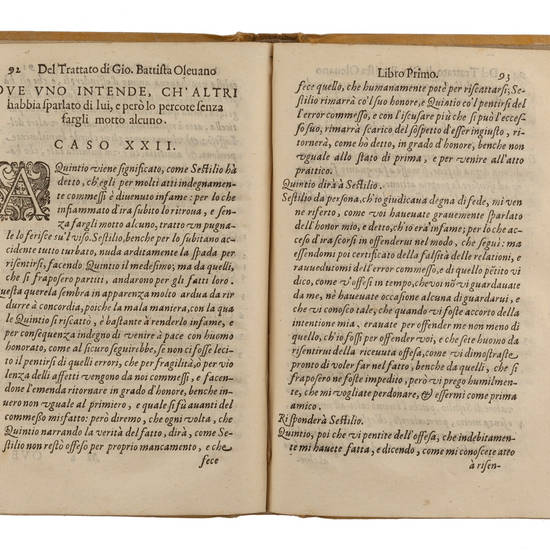 92 Del Trattato di Gio. Battista Oleuano
OVE VNO INTENDE, CH'ALTRI
habbia sparlato di lui, e però lo percote senza
fargli motto alcuno.
CASO XXII.
A Quintio viene significato, come Sestilio hà
detto, ch'egli per molti atti indegnamente
commessi è diuenuto infame: per lo che
infiammato d'ira subito lo ritroua, e senza
fargli motto alcuno, tratto vn pugnale
lo ferisce su'l viso. Sestilio, benche per lo subitano accidente
tutto turbato, nuda arditamente la spada per
risentirsi, facendo Quintio il medesimo; ma da quelli,
che si fraposero partiti, andarono per gli fatti loro.
uesta querela sembra in apparenza molto ardua da ridurre
à concordia, poiche la mala maniera, con la quale
Quintio si riscattò, è bastante à renderlo infame, e
per conseguenza indegno di venire à pace con huomo
honorato, come al sicuro seguirebbe, se non ci fosse lecito
il pentirsi di quelli errori, che per fragilità, ò per violenza
delli affetti vengono da noi commessi, e facendone
l'emenda ritornare in grado d'honore, benche in vero
non vguale al primiero, e quale si fù auanti del
commesso misfatto: però diremo, che ogni volta, che
Quintio narrando la verità del fatto, dirà, come Sestilio
non restò offeso per proprio mancamento, e che
fece
Libro Primo. 93
fece quello, che humanamente potè per riscattarsi; Sestilio
rimarrà co'l suo honore, e Quintio co'l pentirsi del
l'error commesso, e con l'iscusare più che si può l'eccesso
suo, rimarrà scarico del sospetto d'esser ingiusto, ritornerà,
come ho detto, in grado d'honore, benche non
vguale allo stato di prima, e per venire all'atto
prattico.
Quintio dirà à Sestilio.
Sestilio da persona, ch'io giudicaua degna di fede, mi venne
riferto, come voi haueuate grauemente sparlato
dell'honor mio, e detto, ch'io era infame; per lo che acceso
d'ira scorsi in offenderui nel modo, che seguì: ma
essendomi poi certificato della falsità delle relationi, e
rauuedutomi dell'error commesso, e di quello pētito vi
dico, come v'offesi in tempo, che voi nō vi guardauate
da me, nè haueuate occasione alcuna di guardarui, e
che vi conosco tale, che quando vi foste accorto della
intentione mia, erauate per offender me non meno di
quello, ch'io fossi per offender voi, e che sete huomo da
risentirui della riceuuta offesa, come vi dimostraste
pronto di voler far nel fatto, benche da quelli, che si
fraposero ne foste impedito, però vi prego humilmente,
che mi vogliate perdonare, & essermi come prima
amico.
Risponderà Sestilio.
Quintio, poi che vi pentite dell'offesa, che indebitamente
mi hauete fatta, e dicendo, come mi conoscete atto
à risen-